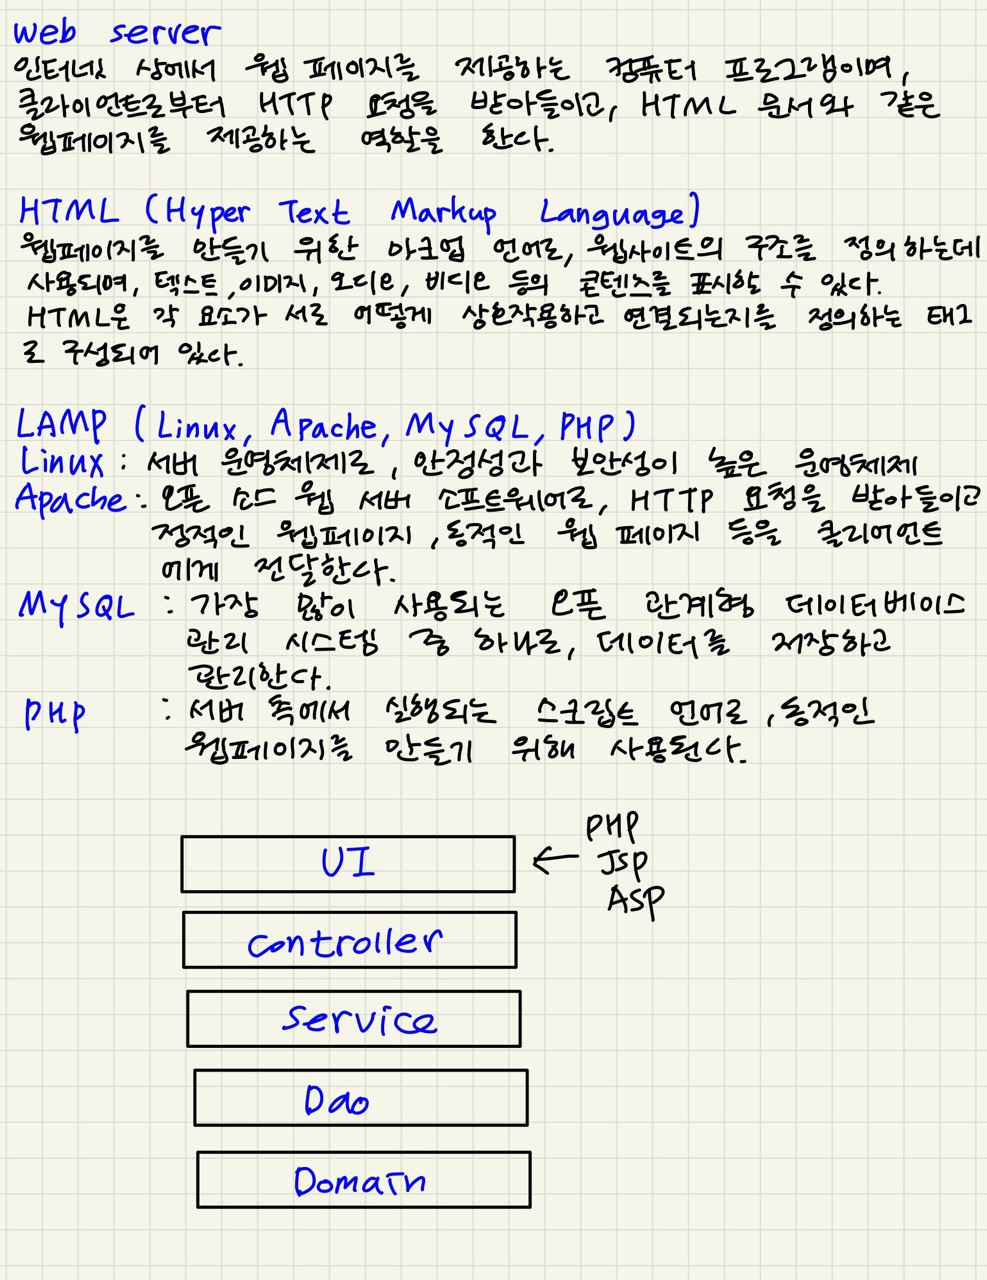 web server
인터넷 상에서 웹 페이지를 제공하는 컴퓨터 프로그램이며,
클라이언트로부터 HTTP 요청을 받아들이고, HTML 문서와 같은
웹페이지를 제공하는 역할을 한다.
HTML (Hyper Text Markup Language)
웹페이지를 만들기 위한 마크업 언어로, 웹사이트의 구조를 정의하는데
사용되며, 텍스트, 이미지, 오디오, 비디오 등의 콘텐츠를 표시할 수 있다.
HTML은 각 요소가 서로 어떻게 상호작용하고 연결되는지를 정의하는 태그
로 구성되어 있다.
LAMP (Linux, Apache, MySQL, PHP)
Linux : 서버 운영체제로, 안정성과 보안성이 높은 운영체제
Apache : 오픈 소드 웹 서버 소프트웨어로, HTTP 요청을 받아들이고
정적인 웹페이지, 동적인 웹 페이지 등을 클리어언트
에게 전달한다.
MySQL : 가장 많이 사용되는 오픈 관계형 데이터베이스
관리 시스템 중 하나로, 데이터를 저장하고
관리한다.
PHP : 서버 측에서 실행되는 스크립트 언어로, 동적인
웹페이지를 만들기 위해 사용된다.
PHP
UI ← JSP
ASP
Controller
Service
Dao
Domain